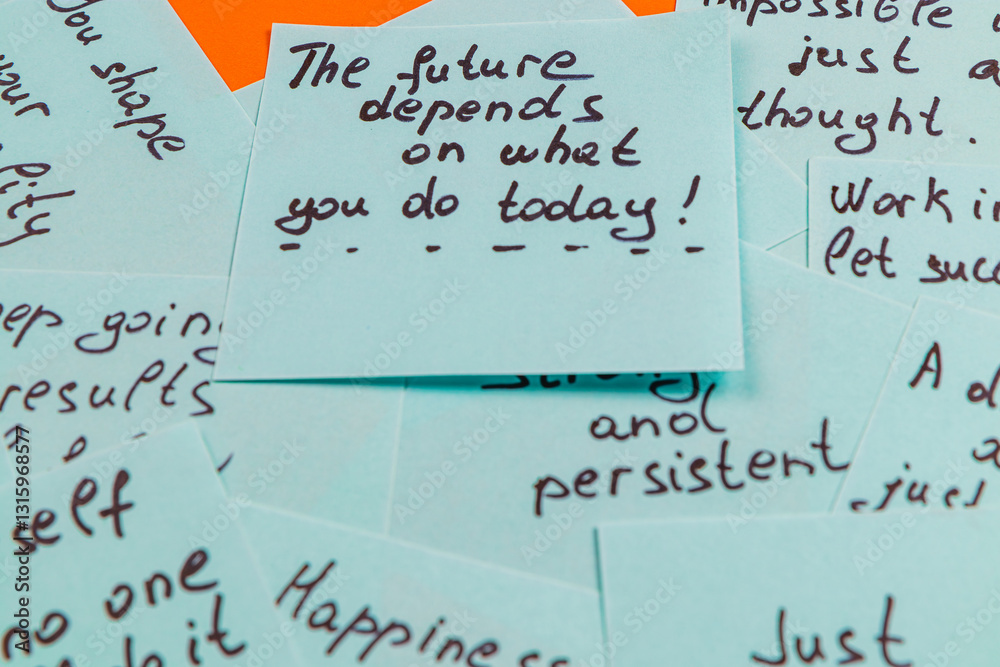 The future
depends
on what
you do today!
you shape
your
lity
impossible
just a
thought.
Work in
let succ
ep going
results
strong
and
persistent
A d
just
elf
no one
it
Happiness
Just
Adobe Stock | #1315968577